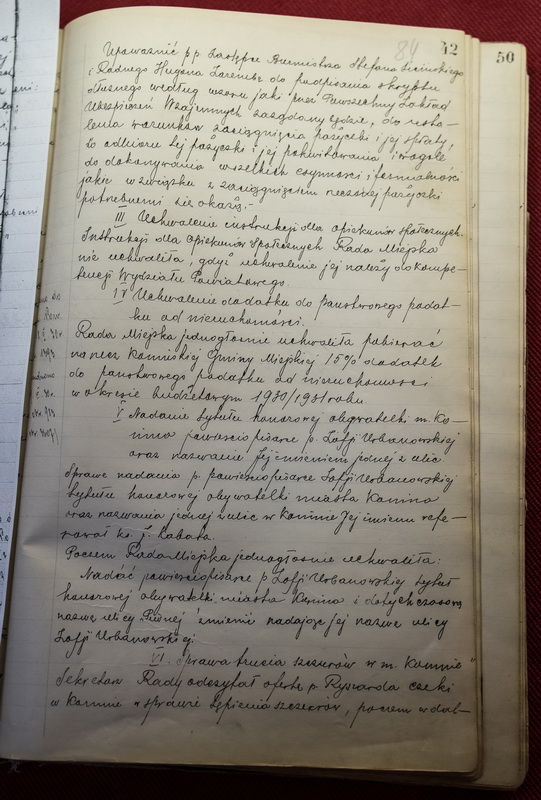 84 42
50
Upoważnić p.p. Zastępcę Burmistrza Stefana
i Radnego Eugena Zarembę do podpisania skryptu
dłużnego według wzoru jaki przez Powszechny Zakład
Ubezpieczeń Wzajemnych zażądany będzie, do usta-
lenia warunków zaciągnięcia pożyczki i jej spłaty,
do odbioru tej pożyczki i jej pokwitowania i wogóle
do dokonywania wszelkich czynności i formalności
jakie w związku z zaciągnięciem rzeczonej pożyczki
potrzebnemi się okażą.-
III Uchwalenie instrukcji dla opiekunów społecznych.
Instrukcji dla opiekunów społecznych Rada Miejska
nie uchwaliła, gdyż uchwalenie jej należy do kompe-
tencji Wydziału Powiatowego.
IV Uchwalenie dodatku do państwowego podat-
ku od nieruchomości.
Rada Miejska jednogłośnie uchwaliła pobierać
na rzecz Gminy Miejskiej 15% dodatek
do państwowego podatku od nieruchomości
w okresie budżetowym 1930/1931 roku.
V Nadanie tytułu honorowej obywatelki m. Ko-
nina powieściopisarce p. Zofji Urbanowskiej
oraz nazwanie Jej imieniem jednej z ulic
Sprawę nadania p. powieściopisarce Zofji Urbanowskiej
tytułu honorowej obywatelki miasta Konina
oraz nazwania jednej z ulic w Koninie Jej imieniem refe-
rował ks. J. Kabata.
Poczem Rada Miejska jednogłośnie uchwaliła:
Nadać powieściopisarce p. Zofji Urbanowskiej tytuł
honorowej obywatelki miasta Konina i dotychczasową
nazwę ulicy zmienić nadając jej nazwę ulicy
Zofji Urbanowskiej.
VI. Sprawa trucia szczurów w m. Koninie
Sekretarz Rady odczytał ofertę p. Ryszarda
w Koninie w sprawie tępienia szczurów, poczem w dal-